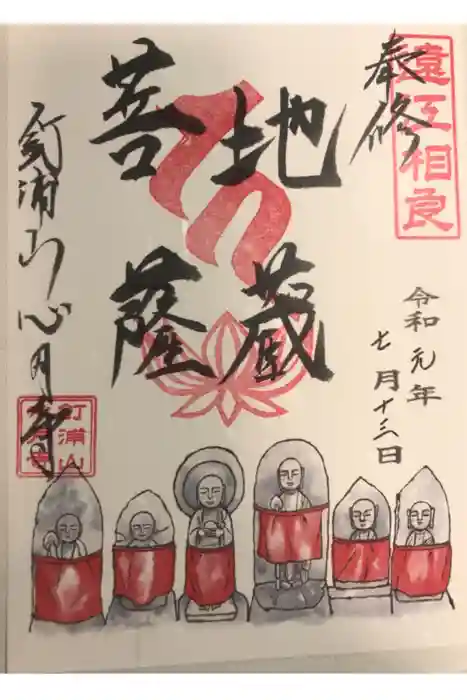 遠江相良
奉修
令和元年
七月十三日
地蔵
菩薩
釘浦山心月寺
釘浦山
心月寺